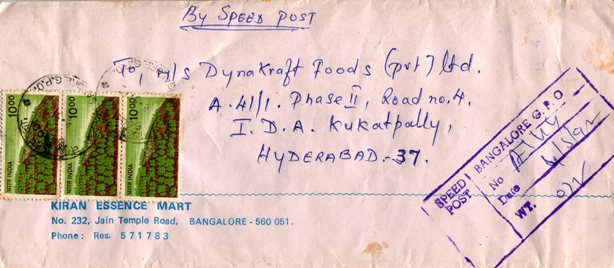 By SPEED POST
To, M/s Dynakraft Foods (pvt) ltd.
A.41/1. Phase II, Road no.4.
I.D.A. Kukatpally,
HYDERABAD-37.
10.00
10.00
10.00
भारत INDIA
KIRAN ESSENCE MART
No. 232, Jain Temple Road, BANGALORE - 560 051.
Phone: Res. 571783
SPEED POST
BANGALORE G.P.O
No
Date
WT.